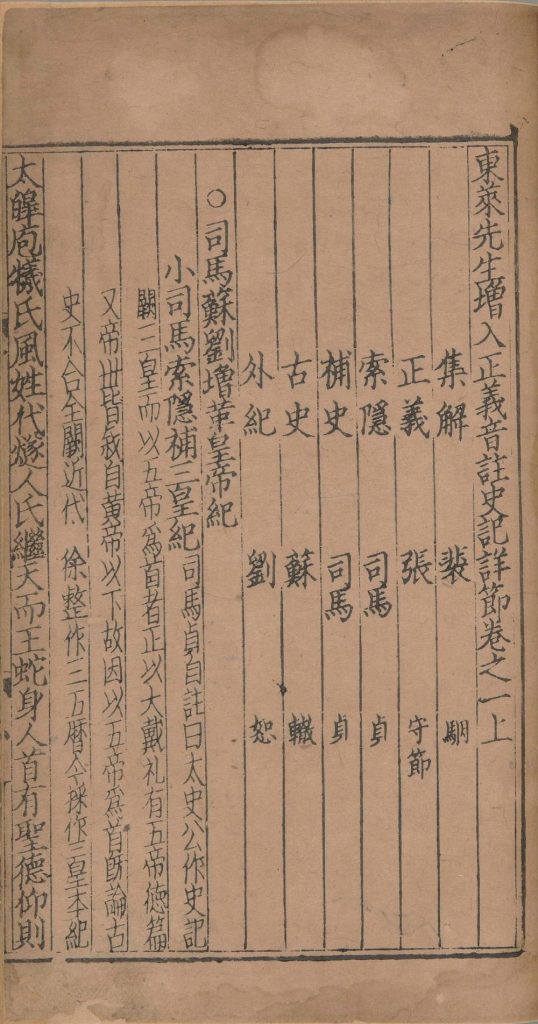 東萊先生増入正義音註史記詳節卷之一上
集解 裴 駰
正義 張 守節
索隱 司馬 貞
補史 司馬 貞
古史 蘇 轍
外紀 劉 恕
○司馬蘇劉増革皇帝紀
小司馬索隱補三皇紀司馬貞自註曰太史公作史記
闕三皇而以五帝爲首者正以大戴礼有五帝德篇
又帝丗皆叙自黄帝以下故因以五帝爲首旣論古
史不合全闕近代 徐整作三五暦今採作三皇本紀
太皥庖犧氏風姓代燧人氏繼天而王蛇身人首有聖德仰則